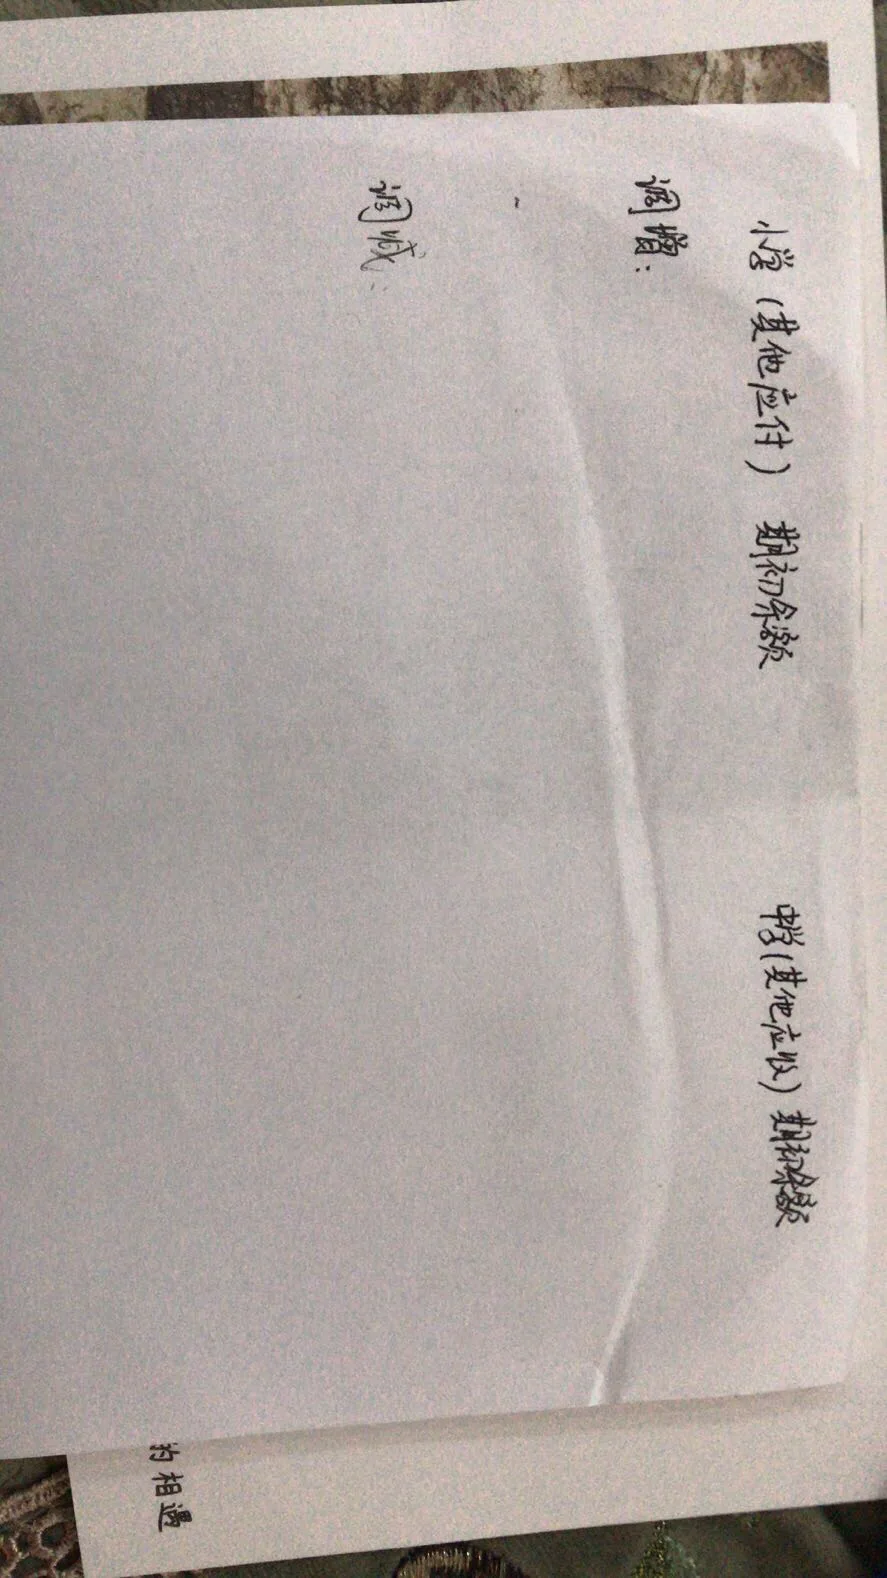 小学（其他应付） 期初余额 中学（其他应收）期初余额
调增：
调减：
的相遇